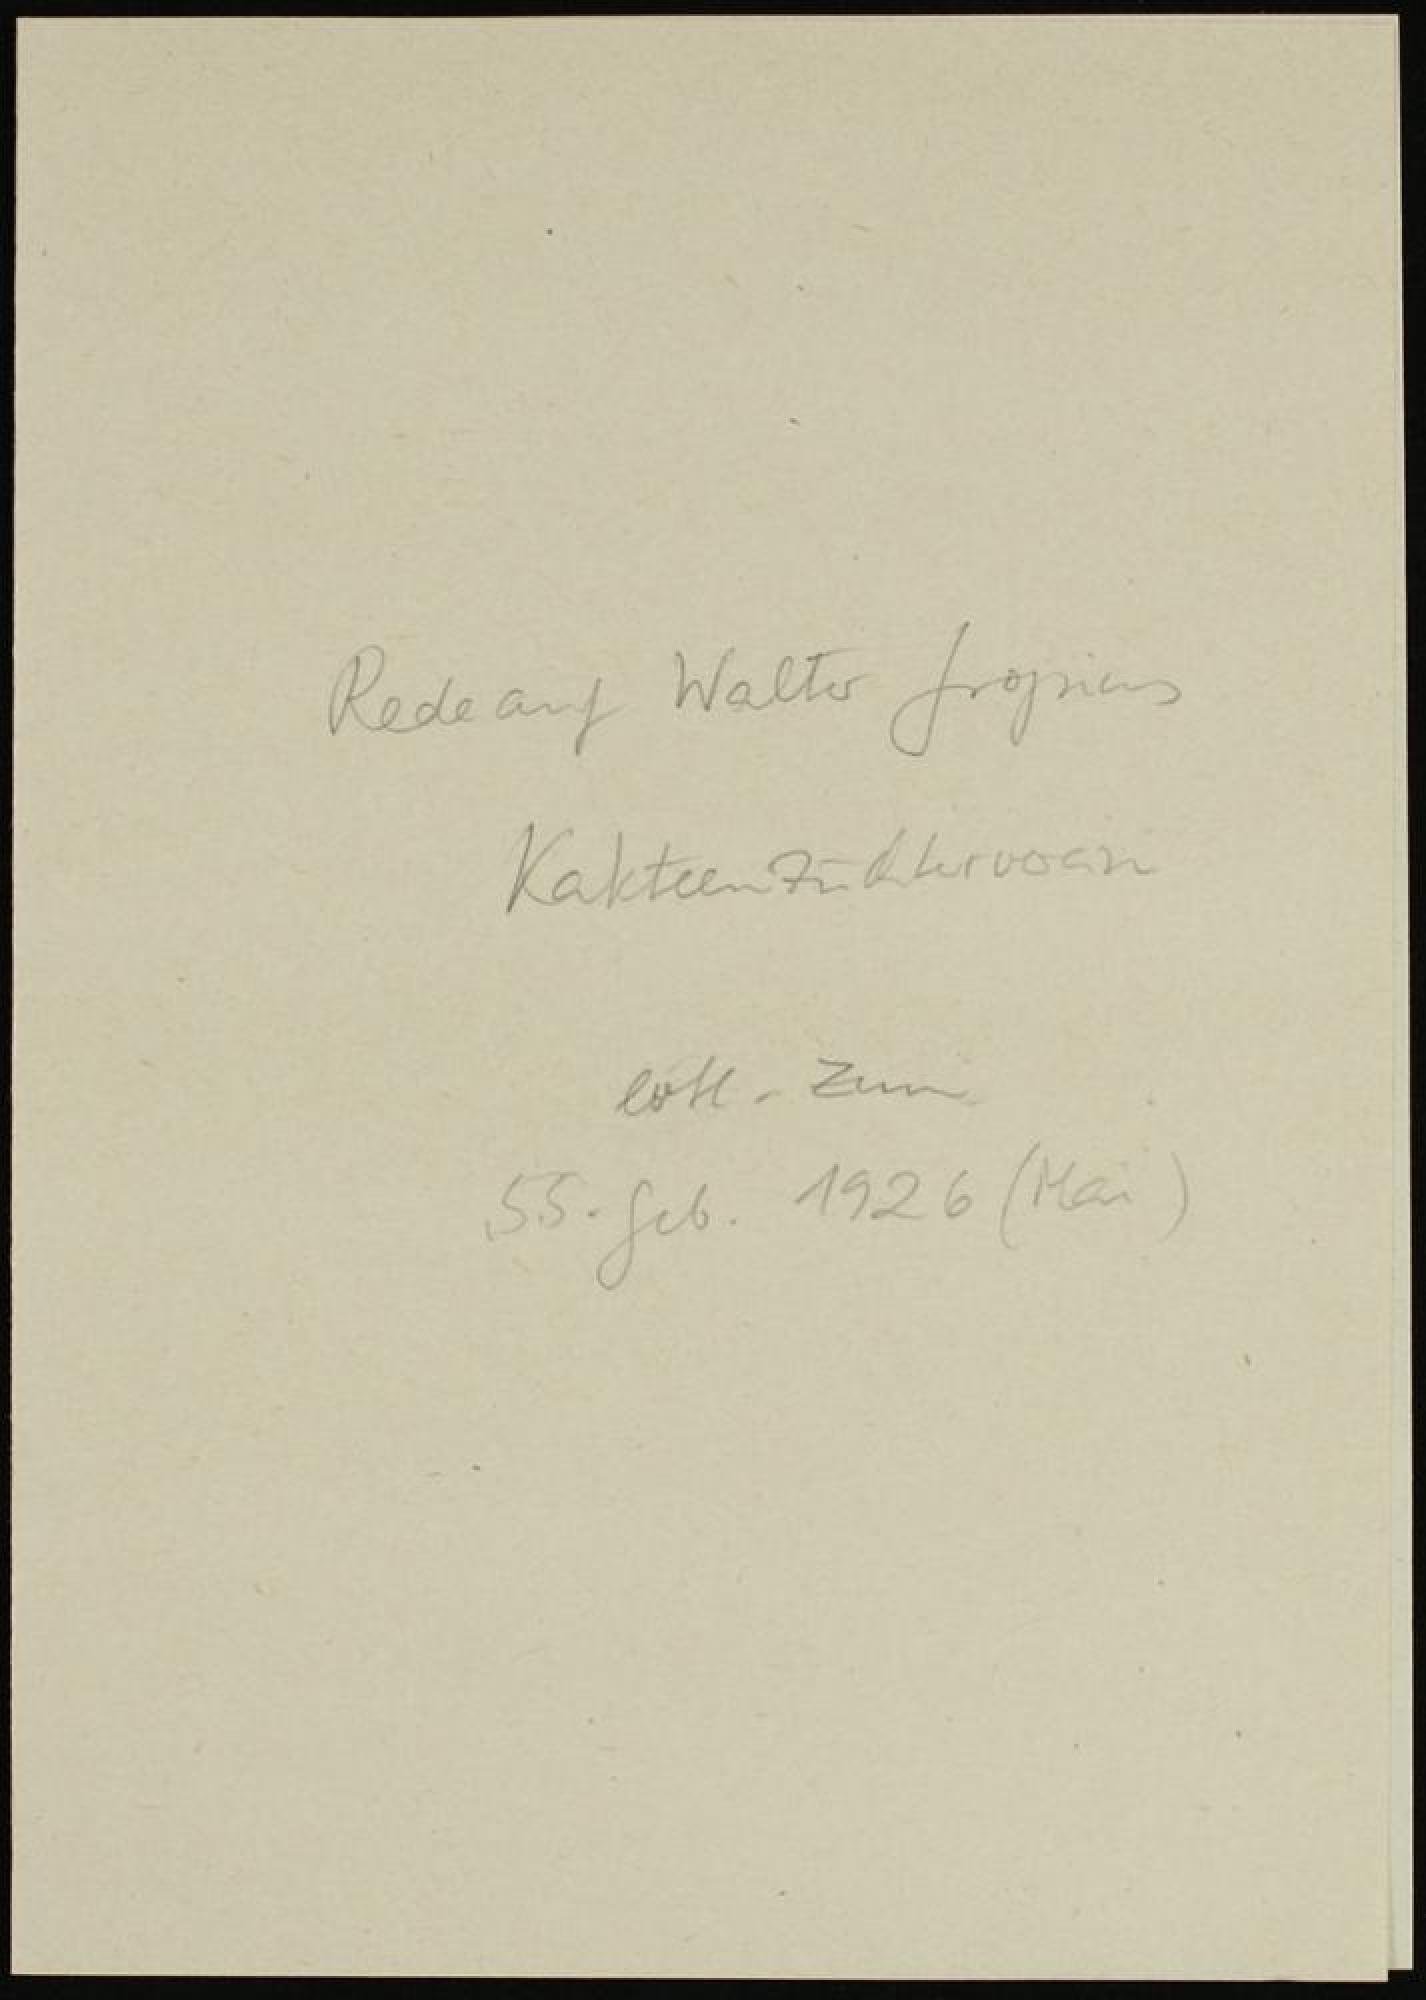 Rede auf Walter Gropius
Kakteenzüchterverein
evtl. - zum
55. Geb. 1926 (Mai)